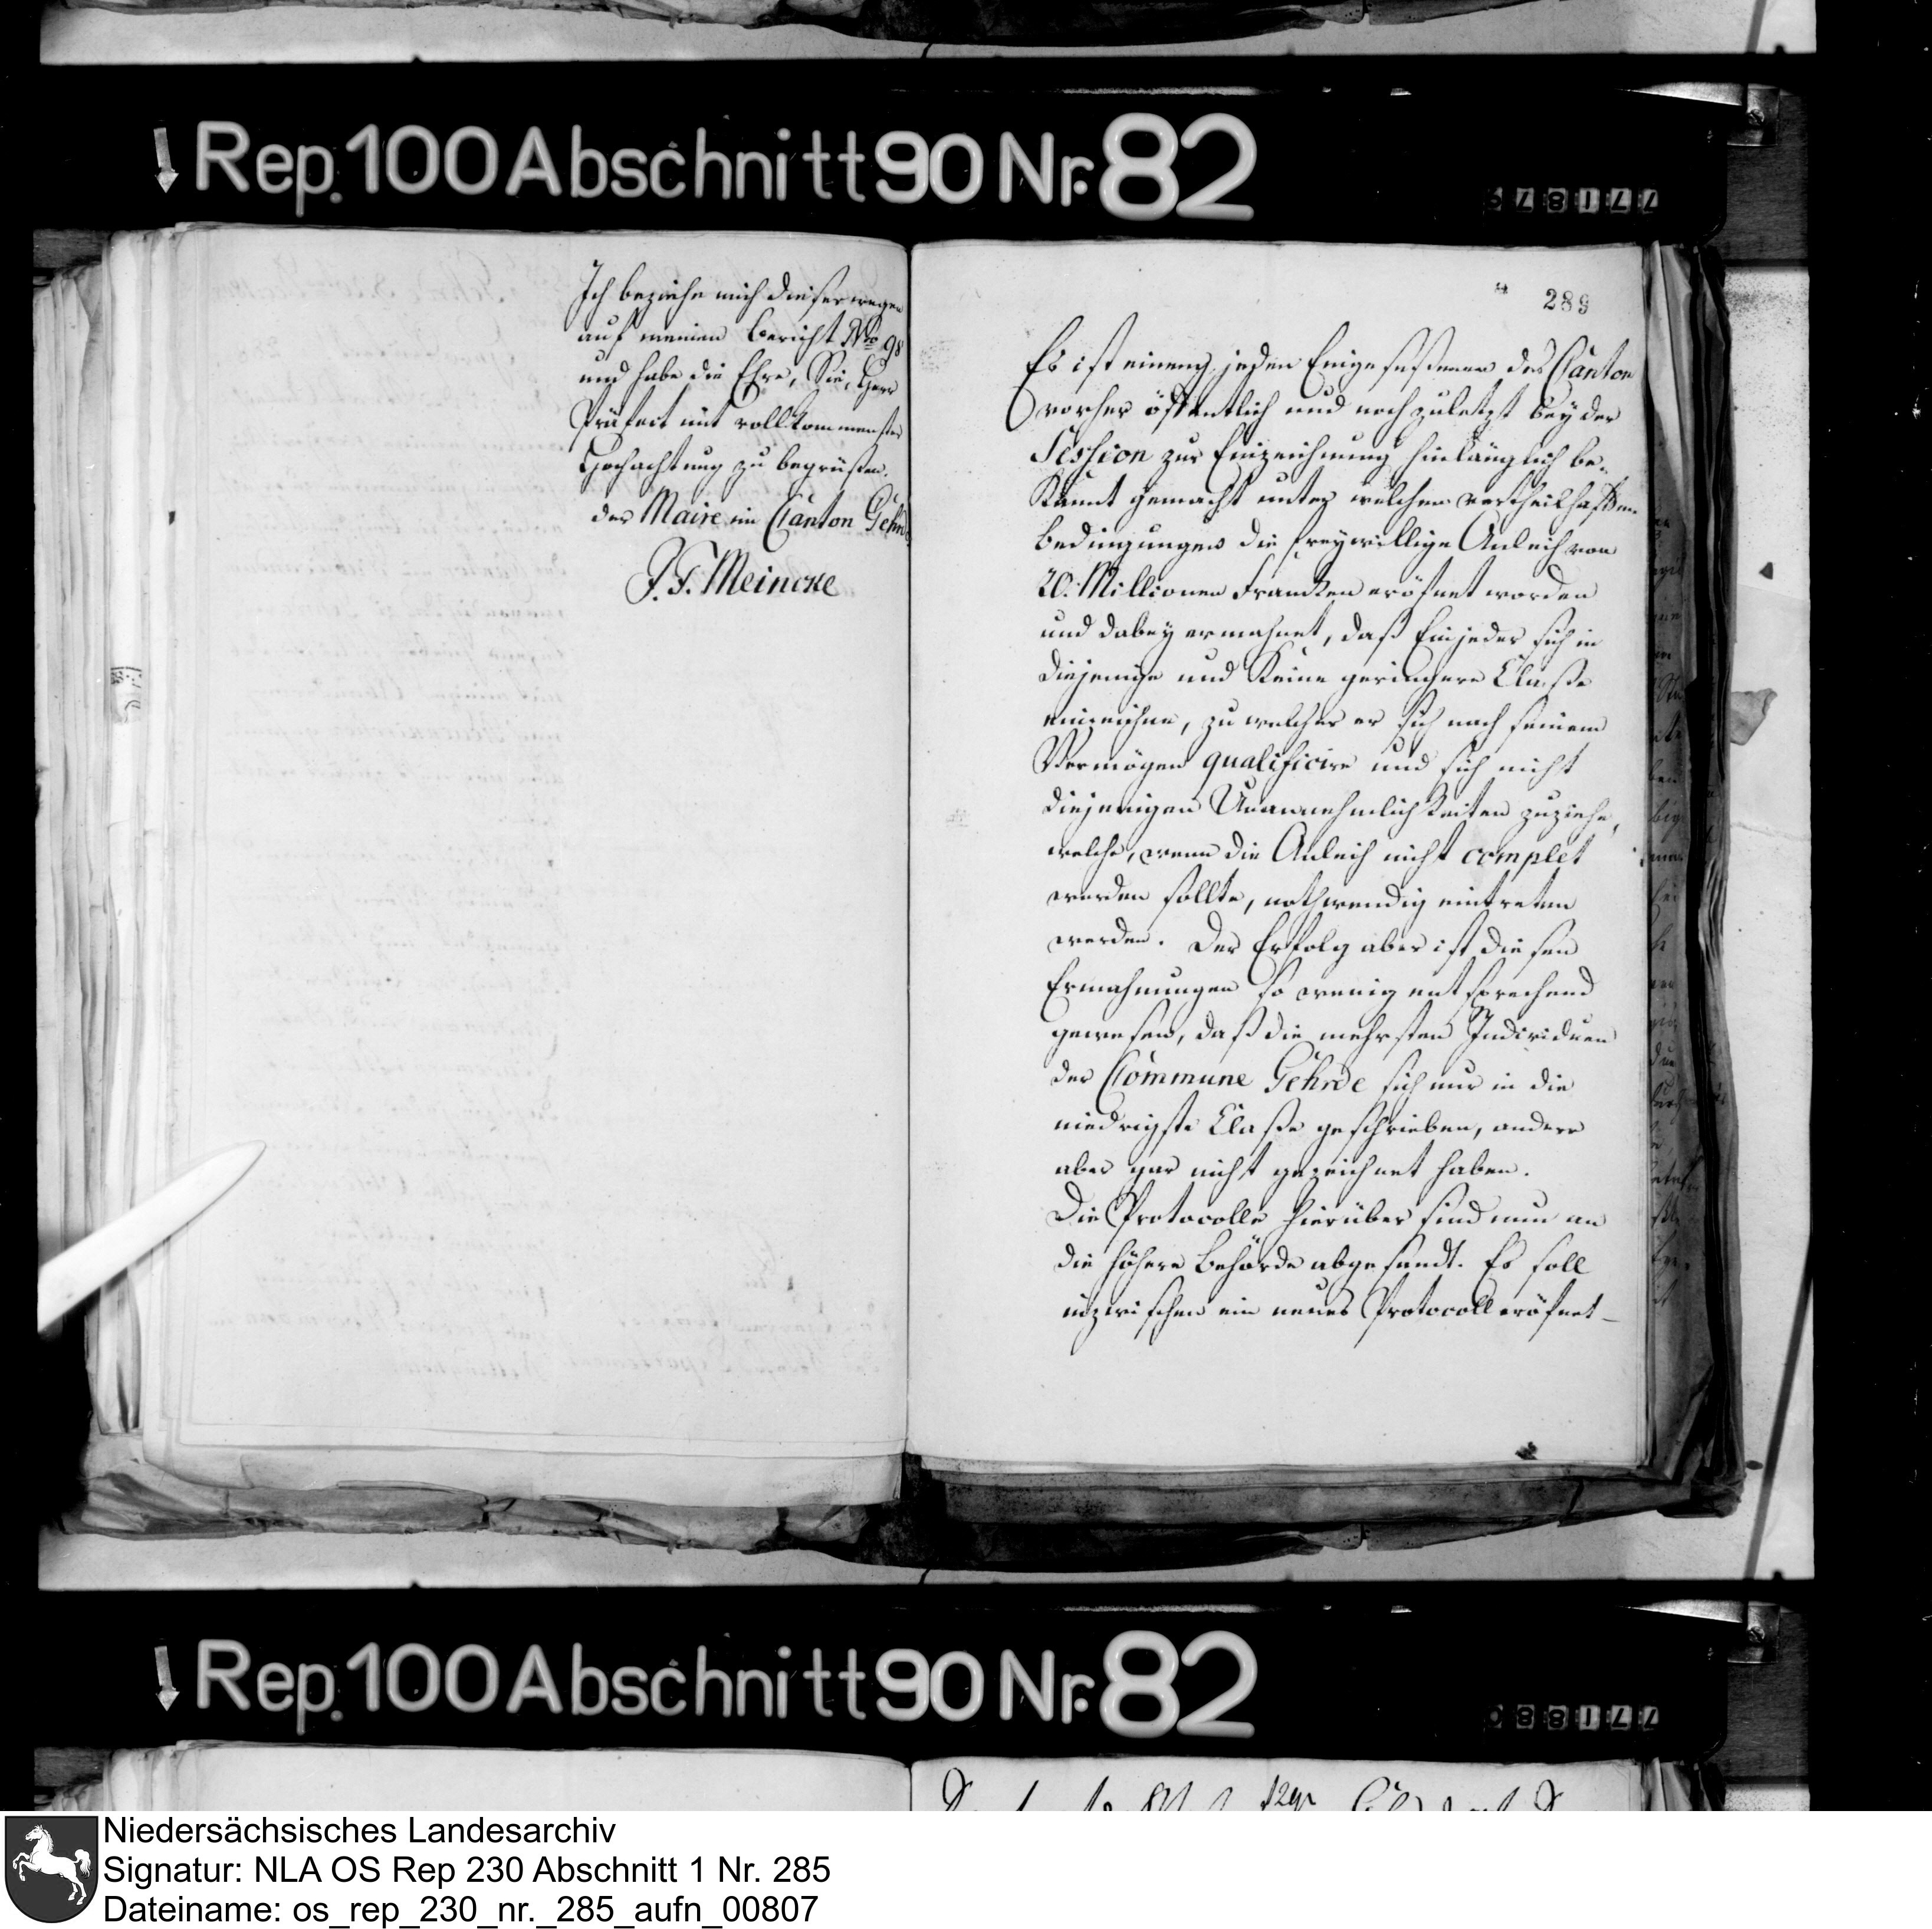 Rep. 100 Abschnitt 90 Nr. 82
771879
Ich beziehe mich dieserwegen
auf meinen Bericht No 98
und habe die Ehre, Sie, Herr
Präfect mit vollkommenster
Hochachtung zu begrüßen.
der Maire im Canton Gehrde
J. F. Meincke
289
Es ist einem jeden Eingeseßenen des Canton
vorher öffentlich und noch zuletzt bey der
Session zur Einzeichnung hinlänglich be-
kannt gemacht unter welchen vortheilhaften
Bedingungen die freywillige Anleih von
20. Millionen Franken eröfnet worden
und dabey ermahnet, daß Einjeder sich in
diejenige und keine geringere Classe
einzeichne, zu welcher er sich nach seinem
Vermögen qualificire und sich nicht
diejenigen Unannehmlichkeiten zuziehe,
welche, wenn die Anleih nicht complet
werden sollte, nothwendig eintreten
werden. Der Erfolg aber ist diesen
Ermahnungen so wenig entsprechend
gewesen, daß die mehrsten Individuen
der Commune Gehrde sich nur in die
niedrigste Classe geschrieben, andere
aber gar nicht gezeichnet haben.
Die Protocolle hierüber sind nun an
die höhere Behörde abgesandt. Es soll
inzwischen ein neues Protocoll eröfnet
Rep. 100 Abschnitt 90 Nr. 82
771880
Niedersächsisches Landesarchiv
Signatur: NLA OS Rep 230 Abschnitt 1 Nr. 285
Dateiname: os_rep_230_nr._285_aufn_00807